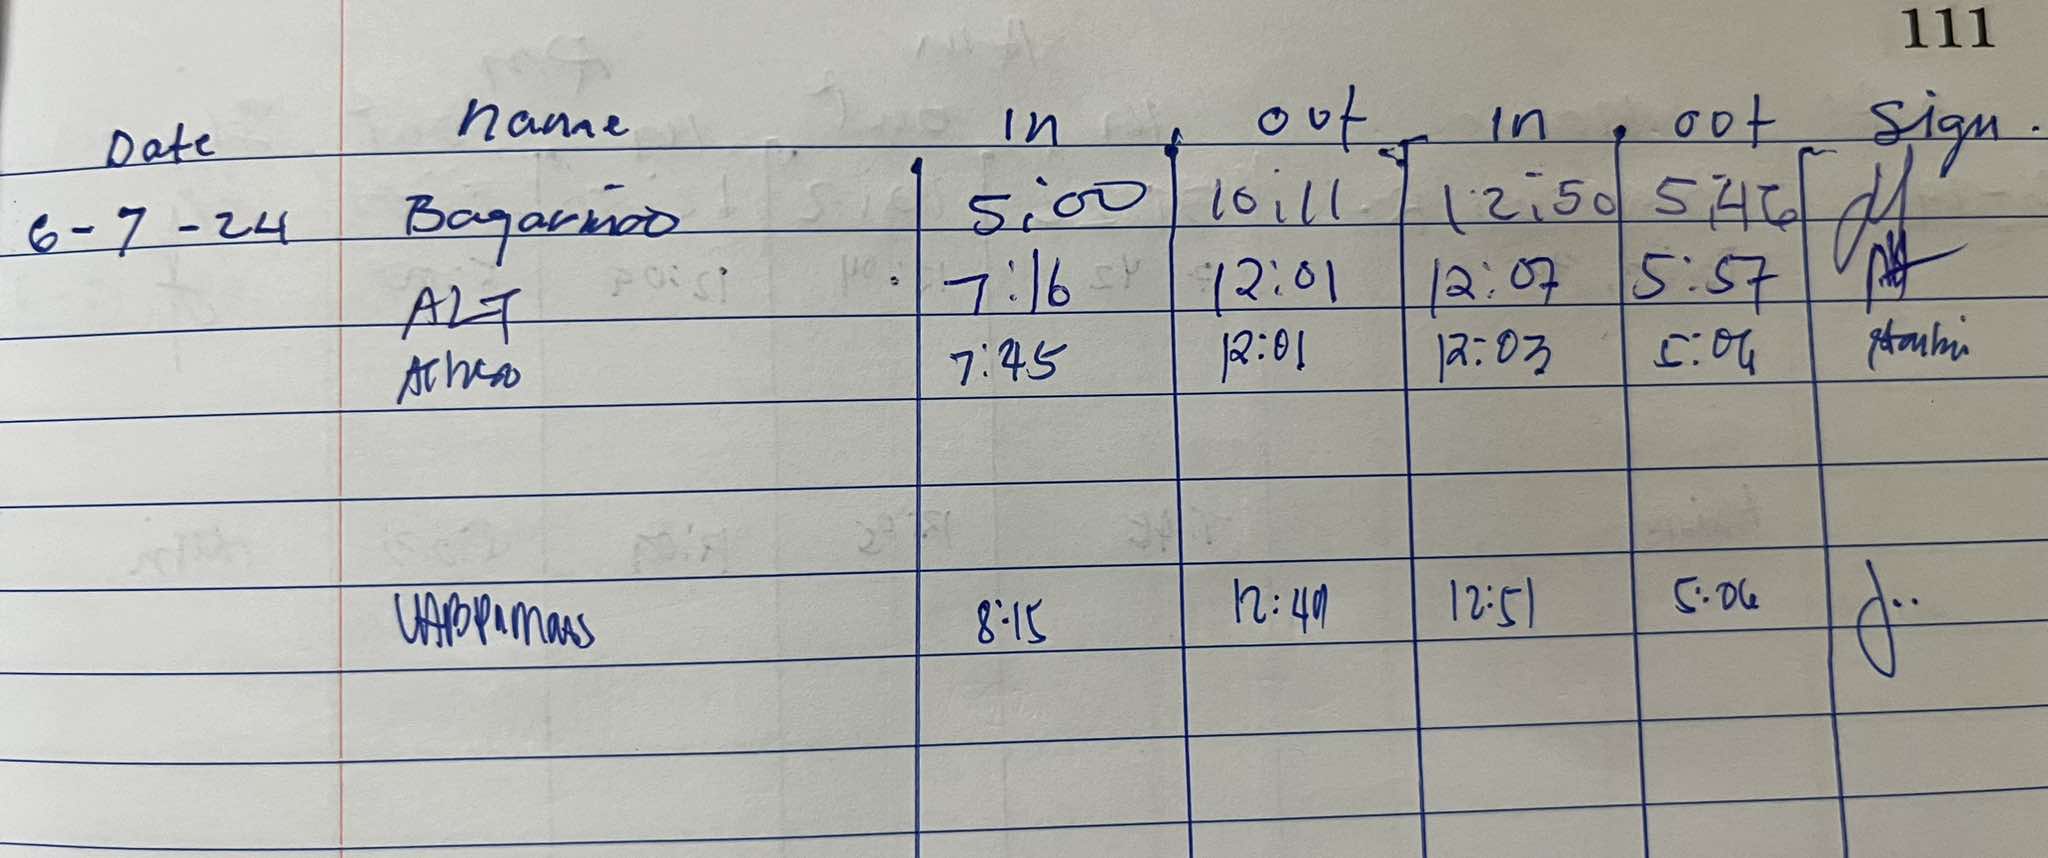 111
Date name in out in oot Sign.
6-7-24 Bagarinao 5:00 10:11 12:50 5:46
ALT 7:16 12:01 12:07 5:57
7:45 12:01 12:03 5:06
8:15 12:49 12:51 5:06